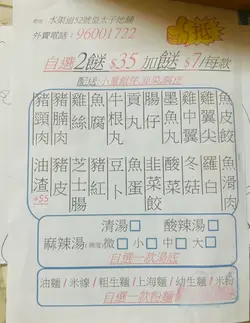 地址：水渠道52號皇太子地舖
外賣電話：96001722
自選2餸$35 加餸$7/每款
配送：小菜組仔、油菜、麵底
豬頸肉 豬腩肉 雞絲 魚腐 牛根丸 貢丸 腸仔 墨魚丸 雞中翼 雞翼尖 魚皮
油渣+$5 豬皮 芝士腸 豬紅 豆卜 魚蛋 韭菜餃 酸菜 冬菇 羅白 魚滑肉
清湯 酸辣湯
麻辣湯 微 小 中 大
自選一款湯底
油麵/米線/粗生麵/上海麵/幼生麵/米粉
自選一款粉麵